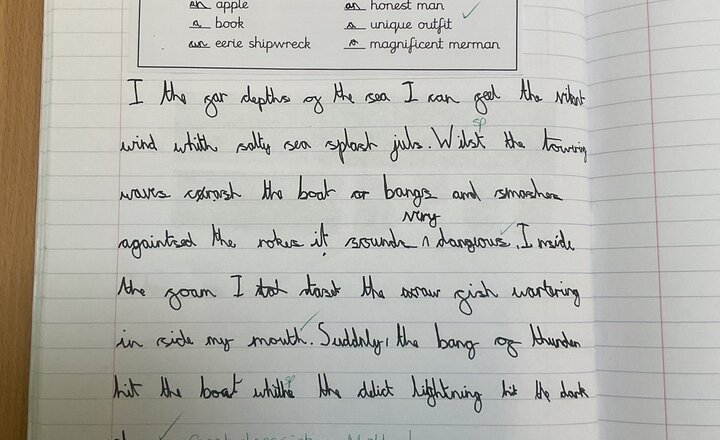 an apple an honest man
a book a unique outfit
an eerie shipwreck a magnificent merman
I the gar depths of the sea I can geel the
wind whith salty sea splash juls. Wilst the towering
sp
waves crash the boat or bangs and smashes
very
againtsed the rokes it sounds dangious. Inside
the goam I taset the raw gish wartering
in side my mouth. Suddnly, the bang of thunder
hit the boat whithe the delict lightning hit the dark